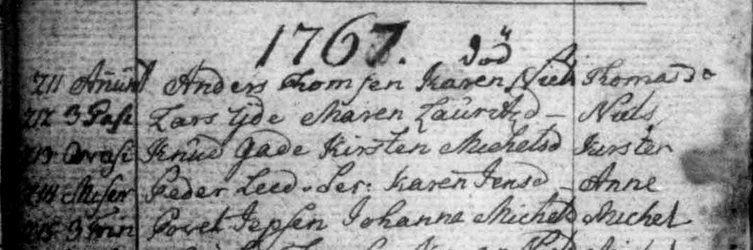 1767.
211 Anunt Anders Thomsen Karen Niels Thomas
212 3 Pasc Lars Yde Maren Lauritzd – Niels
213 Qvasi Knud Gade Kirsten Michelsd Kirsten
214 Miser Peder Leed Karen Jensd – Anne
215 3 Trin Povel Jepsen Johanne Michels Michel